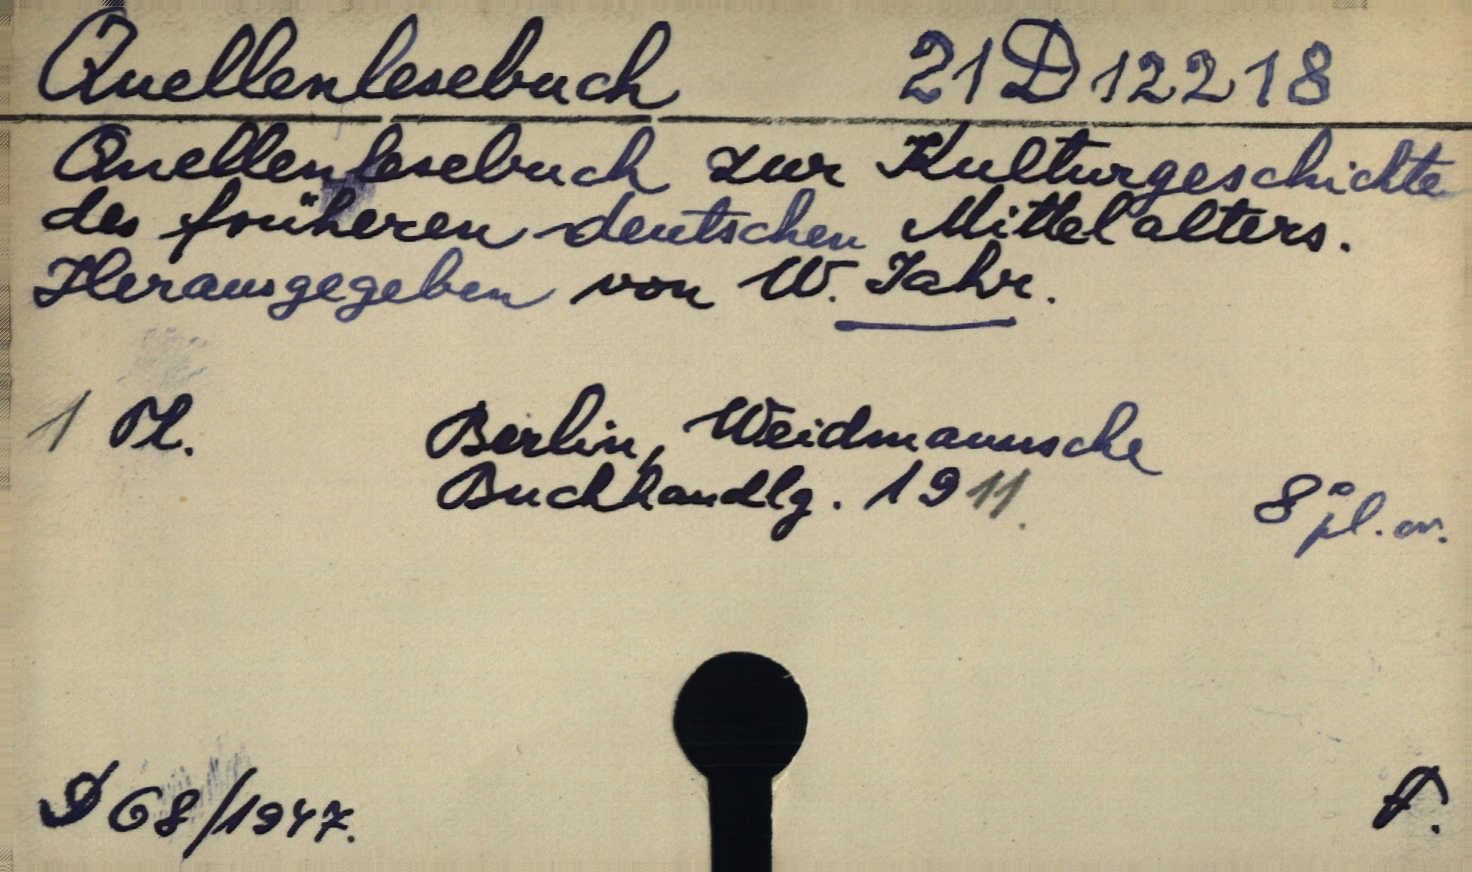 Quellenlesebuch 21 D 12218
Quellenlesebuch zur Kulturgeschichte
des früheren deutschen Mittelalters.
Herausgegeben von W. Jahr.
1 Pl. Berlin, Weidmannsche
Buchhandlg. 1911. 8° pl. or.
68/1947.